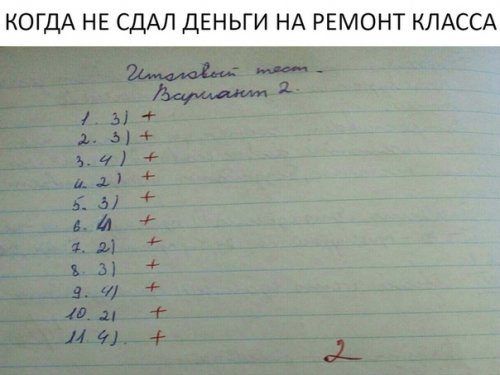 КОГДА НЕ СДАЛ ДЕНЬГИ НА РЕМОНТ КЛАССА
Итоговый тест.
Вариант 2.
1. 3) +
2. 3) +
3. 4) +
4. 2) +
5. 3) +
6. 4) +
7. 2) +
8. 3) +
9. 4) +
10. 2) +
11. 4). +
2